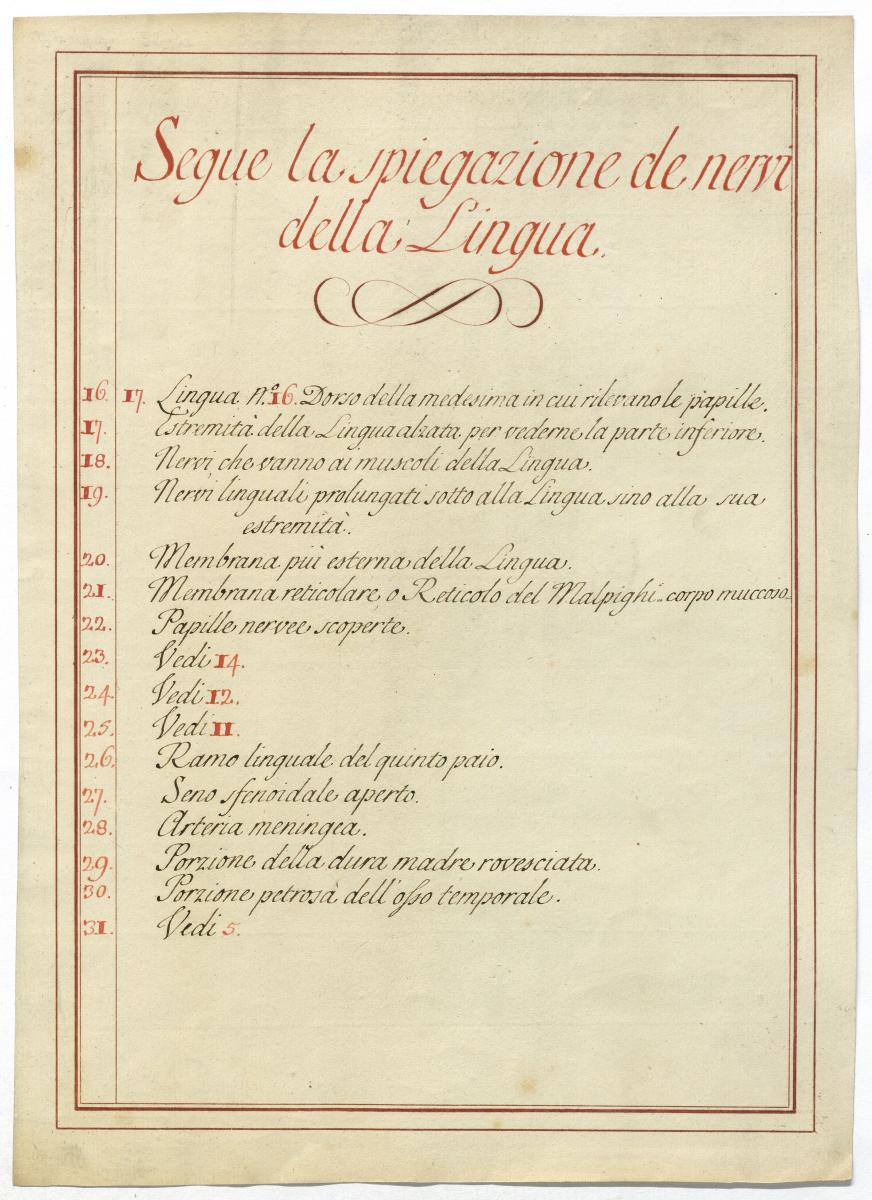 Segue la spiegazione de nervi
della Lingua.
16. 17. Lingua n.º 16. Dorso della medesima in cui rilevano le papille.
17. Estremità della Lingua alzata per vederne la parte inferiore.
18. Nervi, che vanno ai muscoli della Lingua.
19. Nervi linguali prolungati sotto alla Lingua sino alla sua
estremità.
20. Membrana più esterna della Lingua.
21. Membrana reticolare, o Reticolo del Malpighi - corpo muccoso -
22. Papille nervee scoperte.
23. Vedi 14.
24. Vedi 12.
25. Vedi 11.
26. Ramo linguale del quinto paio.
27. Seno sfenoidale aperto.
28. Arteria meningea.
29. Porzione della dura madre rovesciata.
30. Porzione petrosa dell'osso temporale.
31. Vedi 5.